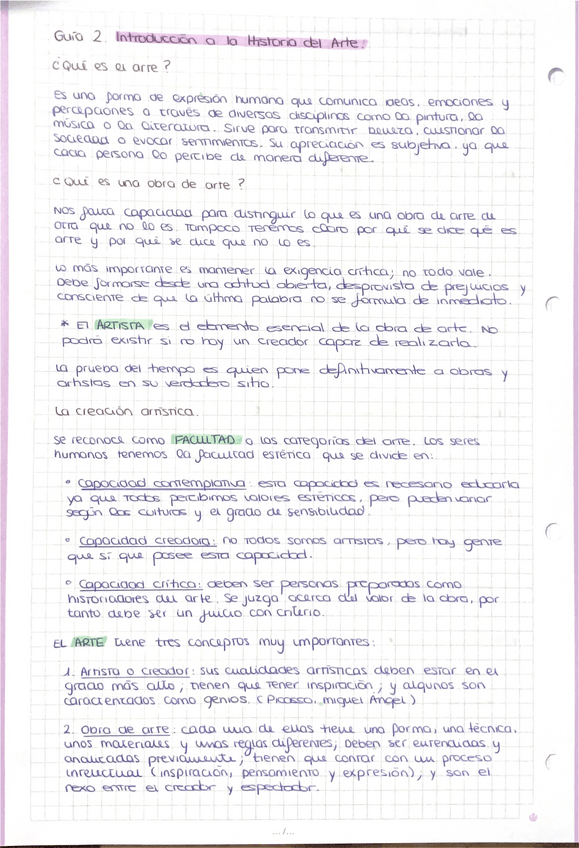 Guía 2. Introducción a la Historia del Arte.
¿Qué es el arte?
Es una forma de expresión humana que comunica ideas, emociones y
percepciones a través de diversas disciplinas como la pintura, la
música o la literatura. Sirve para transmitir belleza, cuestionar la
sociedad o evocar sentimientos. Su apreciación es subjetiva, ya que
cada persona lo percibe de manera diferente.
¿Qué es una obra de arte?
Nos falta capacidad para distinguir lo que es una obra de arte de
otra que no lo es. Tampoco tenemos claro por qué se dice qué es
arte y por qué se dice que no lo es.
Lo más importante es mantener la exigencia crítica; no todo vale.
Debe formarse desde una actitud abierta, desprovista de prejuicios y
consciente de que la última palabra no se formula de inmediato.
* El ARTISTA es el elemento esencial de la obra de arte. No
podrá existir si no hay un creador capaz de realizarla.
La prueba del tiempo es quien pone definitivamente a obras y
artistas en su verdadero sitio.
La creación artística.
Se reconoce como FACULTAD a las categorías del arte. Los seres
humanos tenemos la facultad estética que se divide en:
° Capacidad contemplativa: esta capacidad es necesario educarla
ya que todos percibimos valores estéticos, pero pueden variar
según las culturas y el grado de sensibilidad.
° Capacidad creadora: no todos somos artistas, pero hay gente
que sí que posee esta capacidad.
° Capacidad crítica: deben ser personas preparadas como
historiadores del arte. Se juzga acerca del valor de la obra, por
tanto debe ser un juicio con criterio.
EL ARTE tiene tres conceptos muy importantes:
1. Artista o creador: sus cualidades artísticas deben estar en el
grado más alto; tienen que tener inspiración; y algunos son
caracterizados como genios. (Picasso, Miguel Ángel)
2. Obra de arte: cada una de ellas tiene una forma, una técnica,
unos materiales y unas reglas diferentes; deben ser entendidas y
analizadas previamente; tienen que contar con un proceso
intelectual (inspiración, pensamiento y expresión); y son el
nexo entre el creador y espectador.
.../...